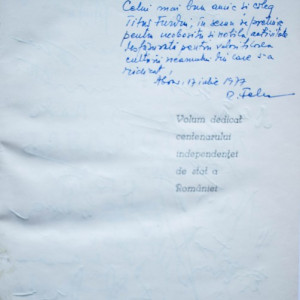 Celui mai bun amic și coleg
Titus Furdui, în semn de prețuire
pentru neobosita și nobila activitate
desfășurată pentru valorificarea
culturii neamului din care s-a
ridicat!
17 iulie 1977
Volum dedicat
centenarului
independenței
de stat a
României